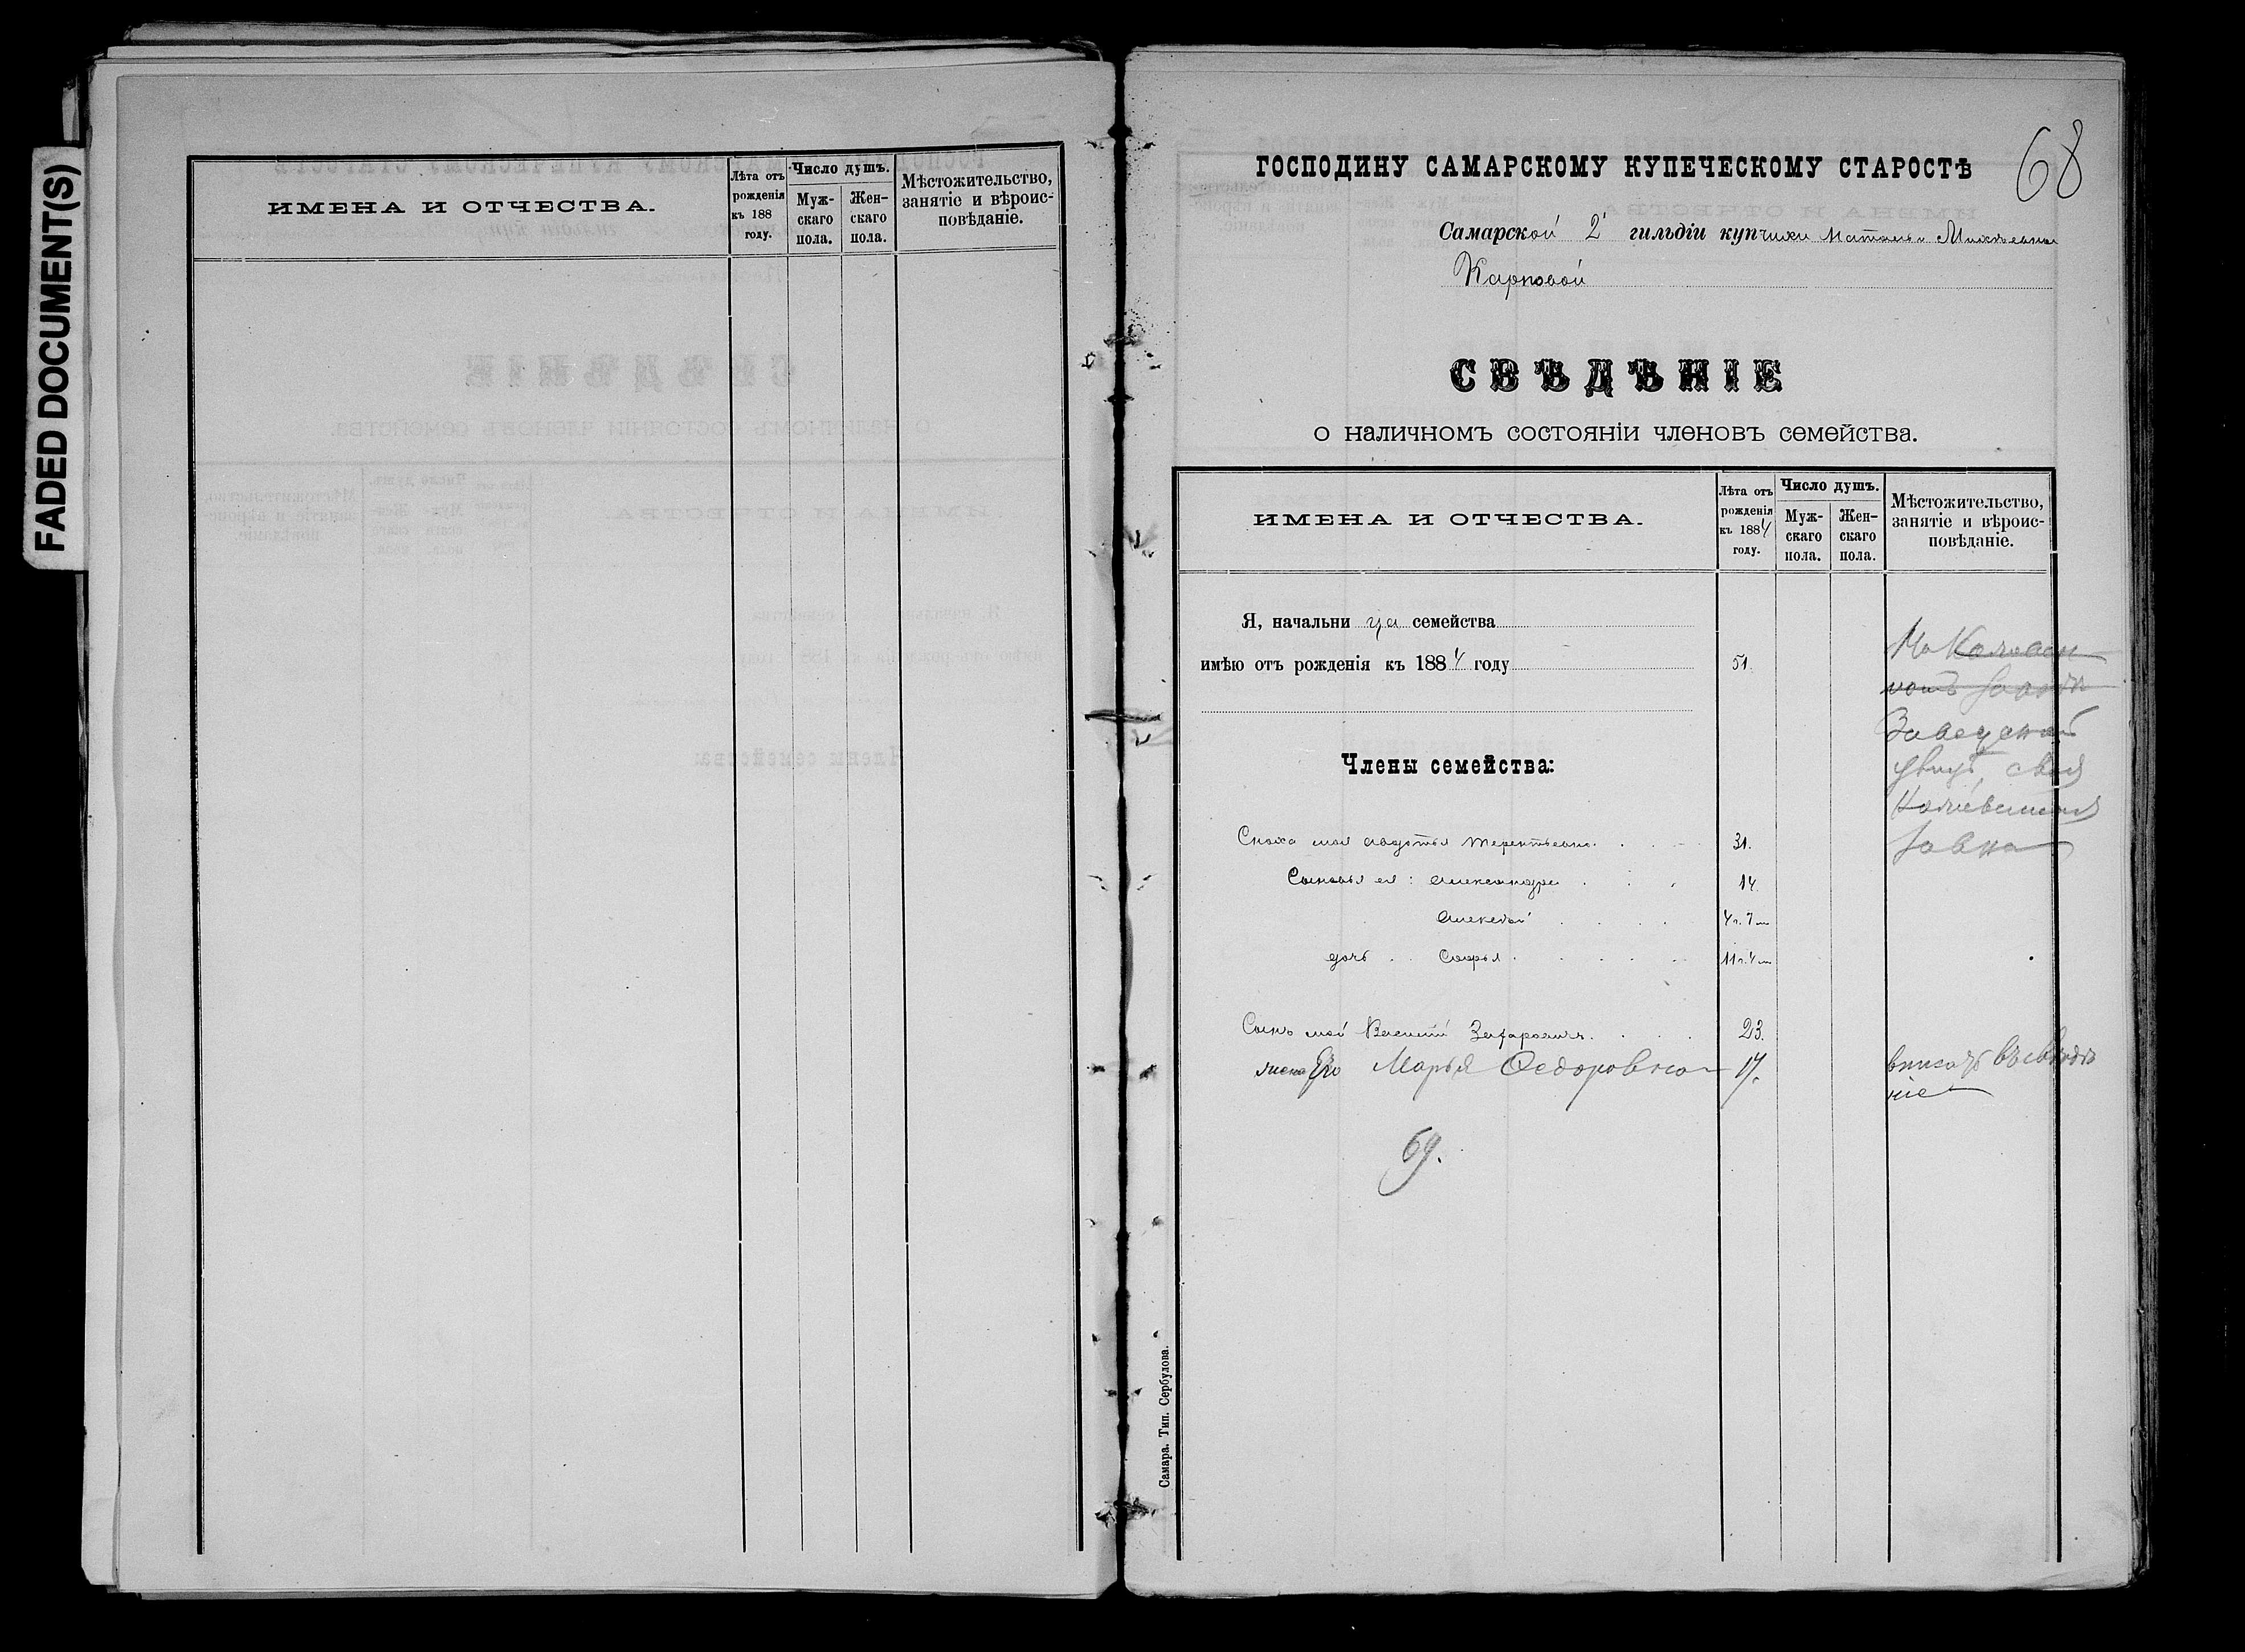 FADED DOCUMENT(S)
ИМЕНА И ОТЧЕСТВА.
Лѣта отъ
рожденія
къ 188
году.
Число душъ.
Муж-
скаго
пола.
Жен-
скаго
пола.
Мѣстожительство,
занятіе и вѣроис-
повѣданіе.
68
ГОСПОДИНУ САМАРСКОМУ КУПЕЧЕСКОМУ СТАРОСТѢ
Самарской 2й гильдіи купчихи
Карповой
СВѢДѢНІЕ
о наличномъ состояніи членовъ семейства.
ИМЕНА И ОТЧЕСТВА.
Лѣта отъ
рожденія
къ 1884
году.
Число душъ.
Муж-
скаго
пола.
Жен-
скаго
пола.
Мѣстожительство,
занятіе и вѣроис-
повѣданіе.
Я, начальница семейства
имѣю отъ рожденія къ 1884 году 51.
Члены семейства:
Сноха моя Авдотья Терентьевна 31.
Сыновья ея: Александръ 14.
Алексѣй 4 г. 7 м
дочь Софья 11 г. 4 м
Сынъ мой Василій Захаровичъ 23.
жена Его Марья Федоровна 17.
69.
Самара. Тип. Сербулова.